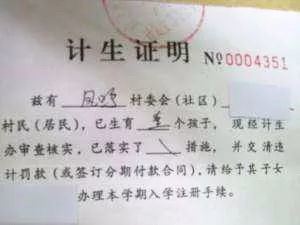 计生证明 №0004351
兹有 村委会（社区）
村民（居民），已生育 个孩子，现经计生
办审查核实，已落实了 措施，并交清违
计罚款（或签订分期付款合同），请给予其子女
办理本学期入学注册手续。